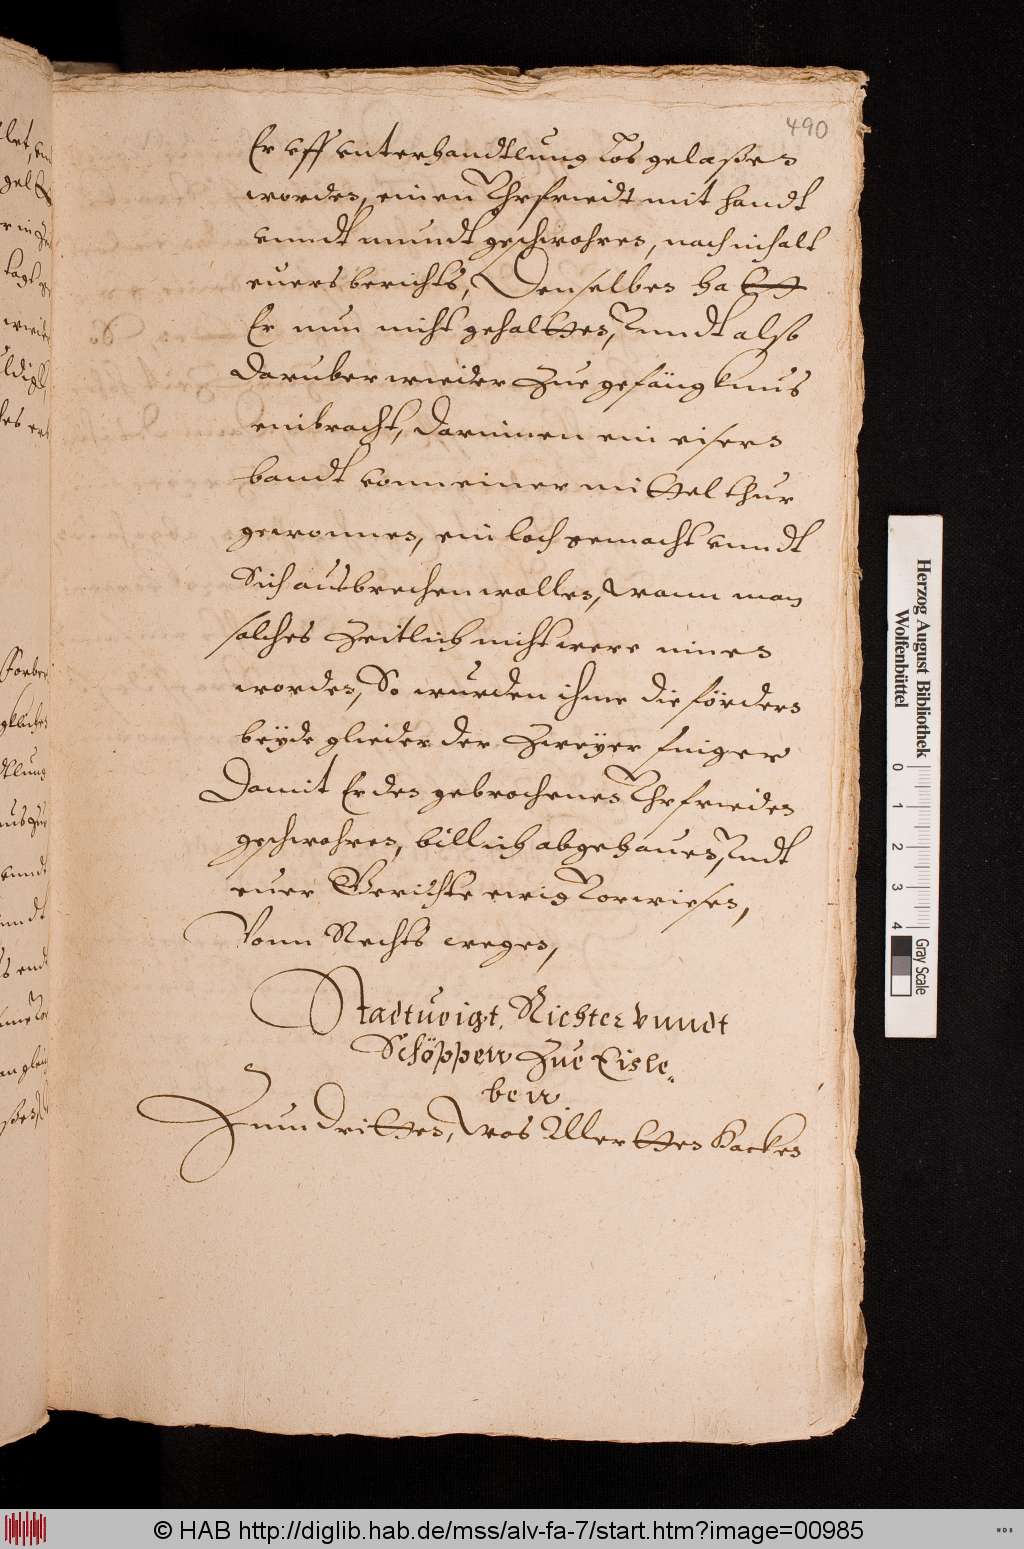 490
Er vff vnterhandtlung Los gelaßen
worden, einen Vhrfriedt mit handt
vnndt mundt geschwohren, nach inhalt
euers berichts, Denselben hatt
Er nun nicht gehaltten, Vnndt also
daruber wieder Zue gefängknus
einbracht, darinnen ein eisern
bandt vonn einer mittel thur
gewonnen, ein loch gemacht vnndt
Sich ausbrechen wollen, wann man
solches Zeitlich nicht were innen
worden, So wurden ihme die fördern
beÿde glieder der Zweÿer finger
Damit Er den gebrochenen Vhrfrieden
geschwohren, billich abgehauen, Vndt
euer Gerichte ewig Vorwiesen,
Vonn Rechts wegen,
Stadtuoigt, Richter vnndt
Schöppen Zue Eisle„
ben
Zum dritten, Was Allertten Hacken
Herzog August Bibliothek
Wolfenbüttel
0 1 2 3 4
Gray Scale
© HAB http://diglib.hab.de/mss/alv-fa-7/start.htm?image=00985